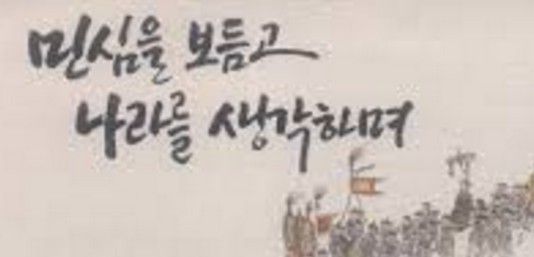 민심을 보듬고
나라를 생각하며